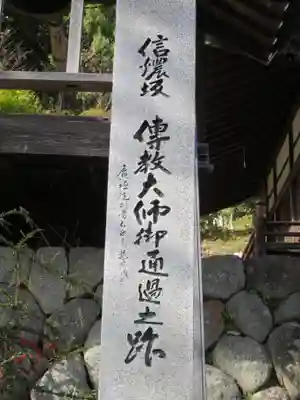 信濃坂
傳教大師御通過之跡